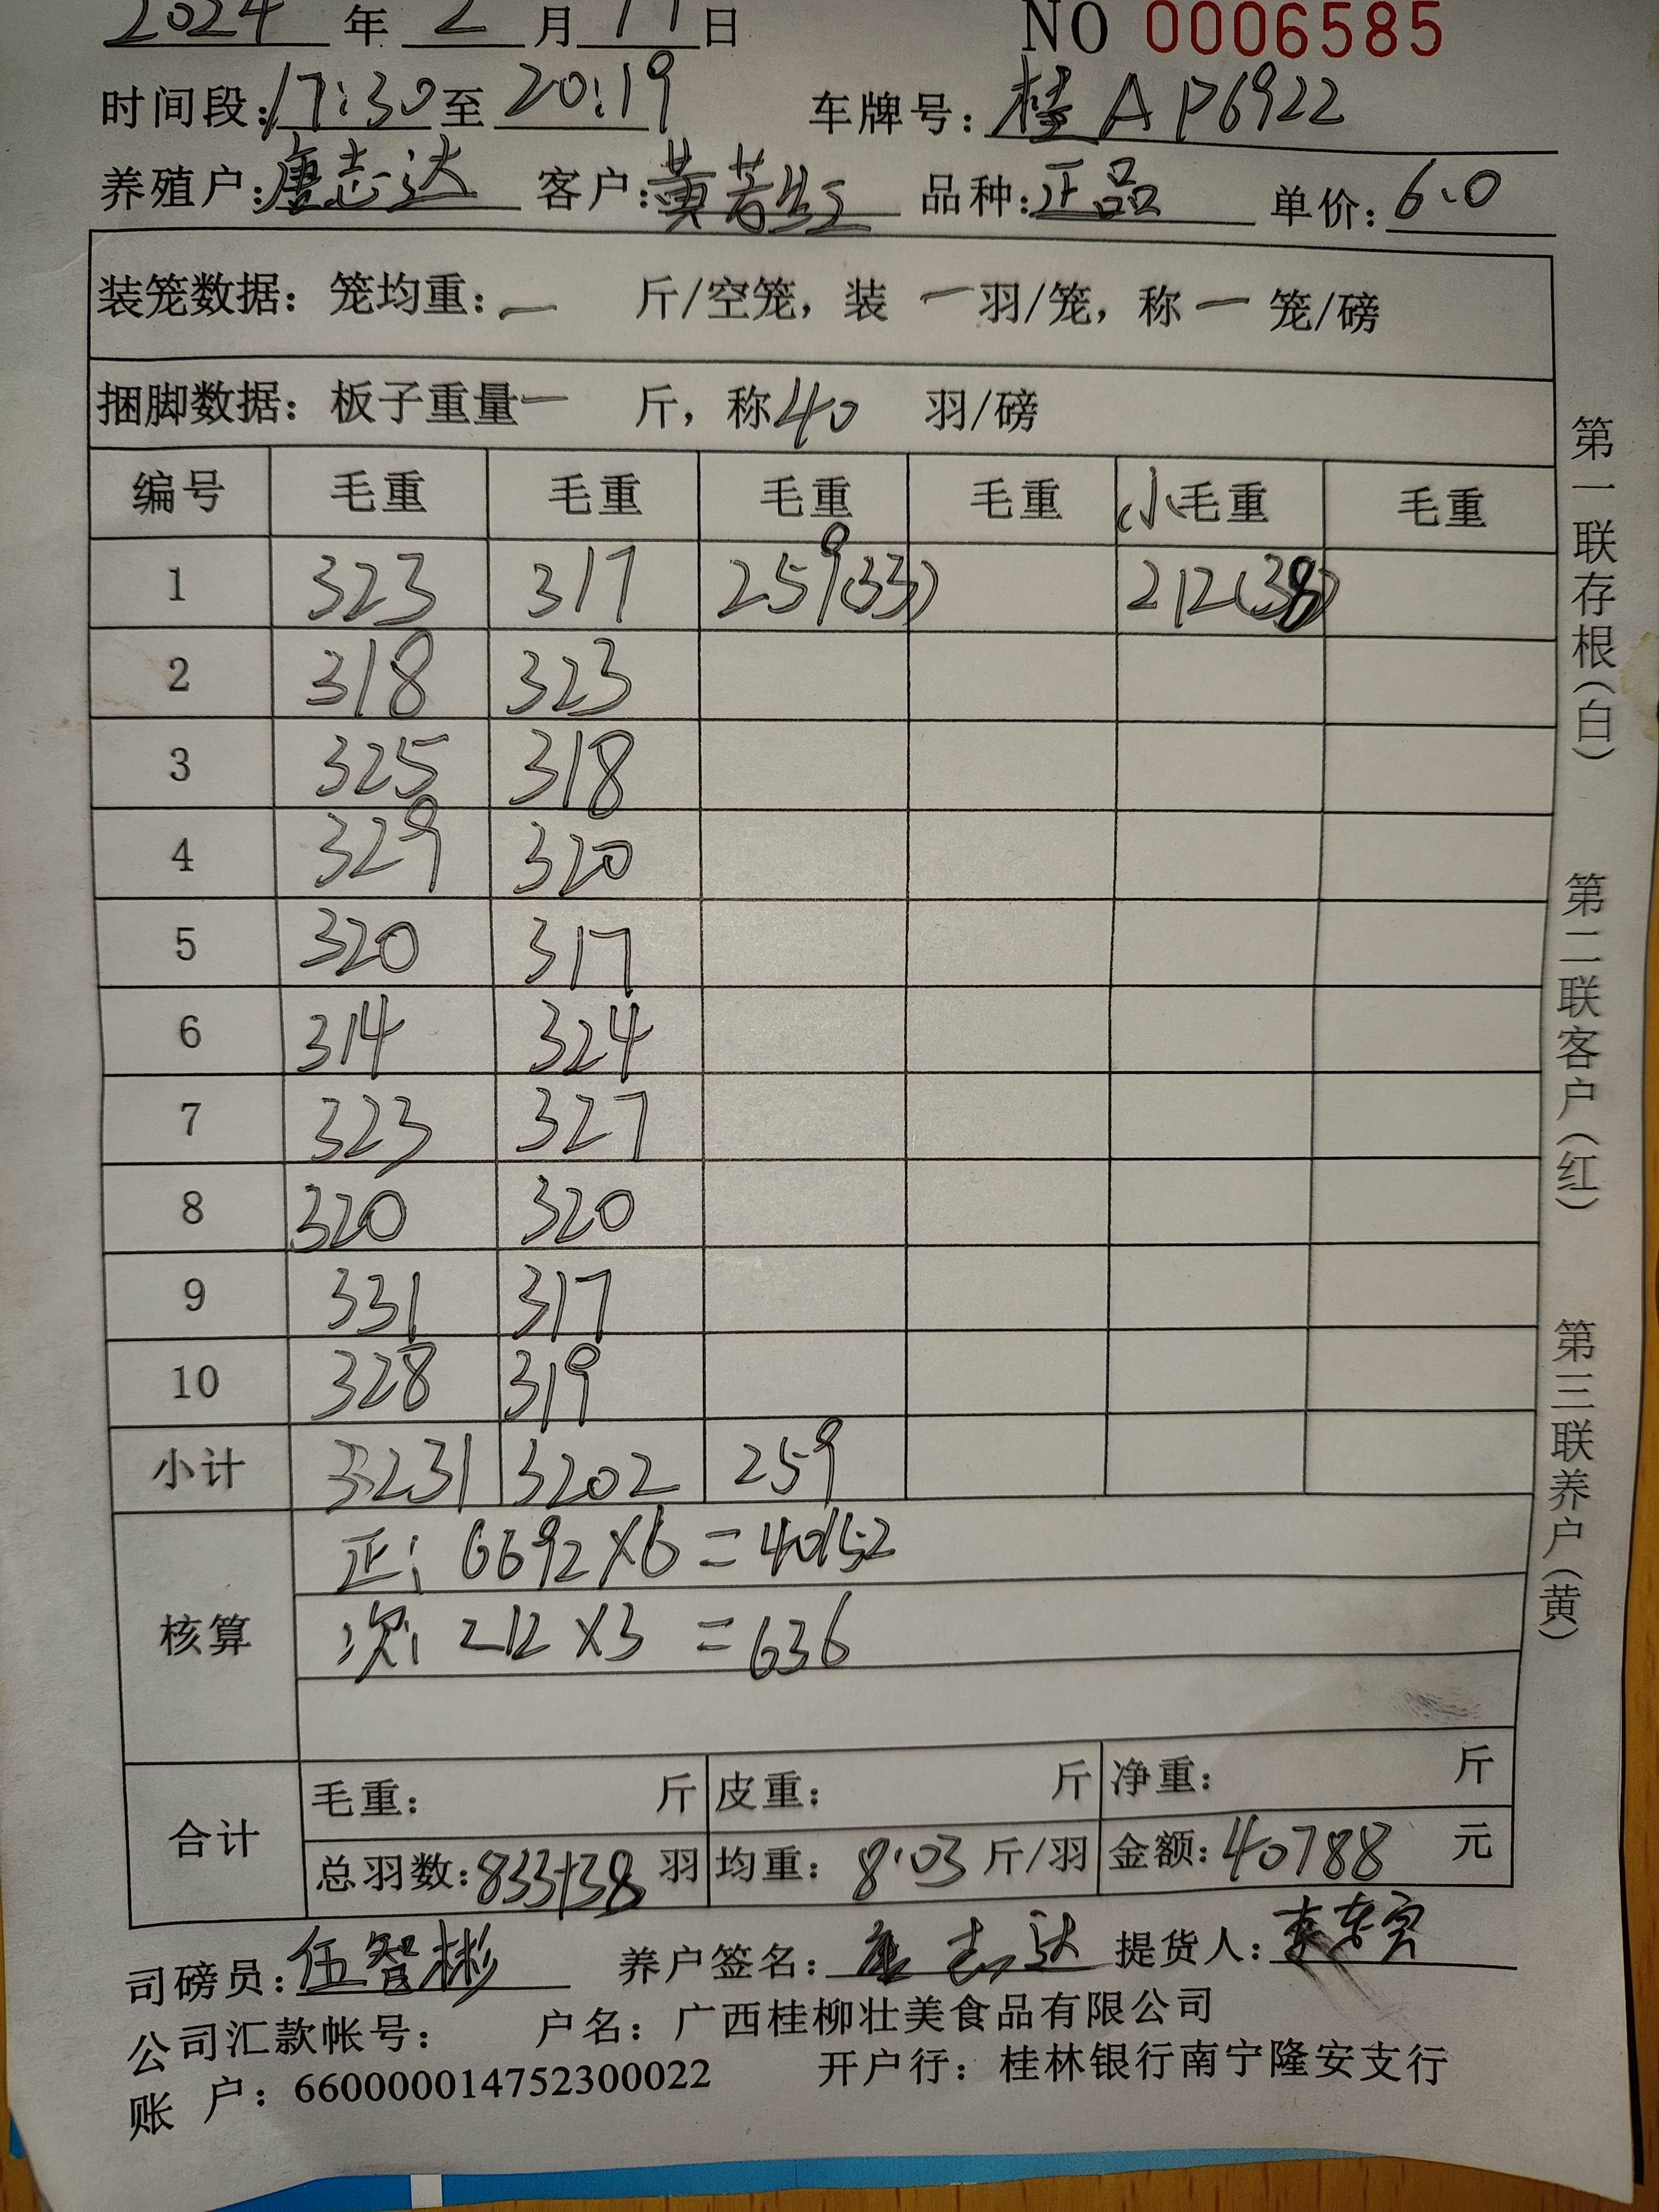 2024 年 2 月 17 日 NO 0006585
时间段：17:30 至 20:19 车牌号：桂AP6922
养殖户：唐志达 客户：黄若红 品种：正品 单价：6.0
装笼数据：笼均重：— 斤/空笼，装 — 羽/笼，称 — 笼/磅
捆脚数据：板子重量 — 斤，称 40 羽/磅
编号 毛重 毛重 毛重 毛重 小毛重 毛重
1 323 317 259(33) 212(38)
2 318 323
3 325 318
4 329 320
5 320 317
6 314 324
7 323 327
8 320 320
9 331 317
10 328 319
小计 3231 3202 259
核算
正: 6692×6=40152
次: 212×3 =636
合计
毛重： 斤 皮重： 斤 净重： 斤
总羽数：833+38 羽 均重：8.03 斤/羽 金额：40788 元
司磅员：伍智彬 养户签名：唐志达 提货人：
公司汇款帐号： 户名：广西桂柳壮美食品有限公司
账 户：660000014752300022 开户行：桂林银行南宁隆安支行
第一联存根（白） 第二联客户（红） 第三联养户（黄）